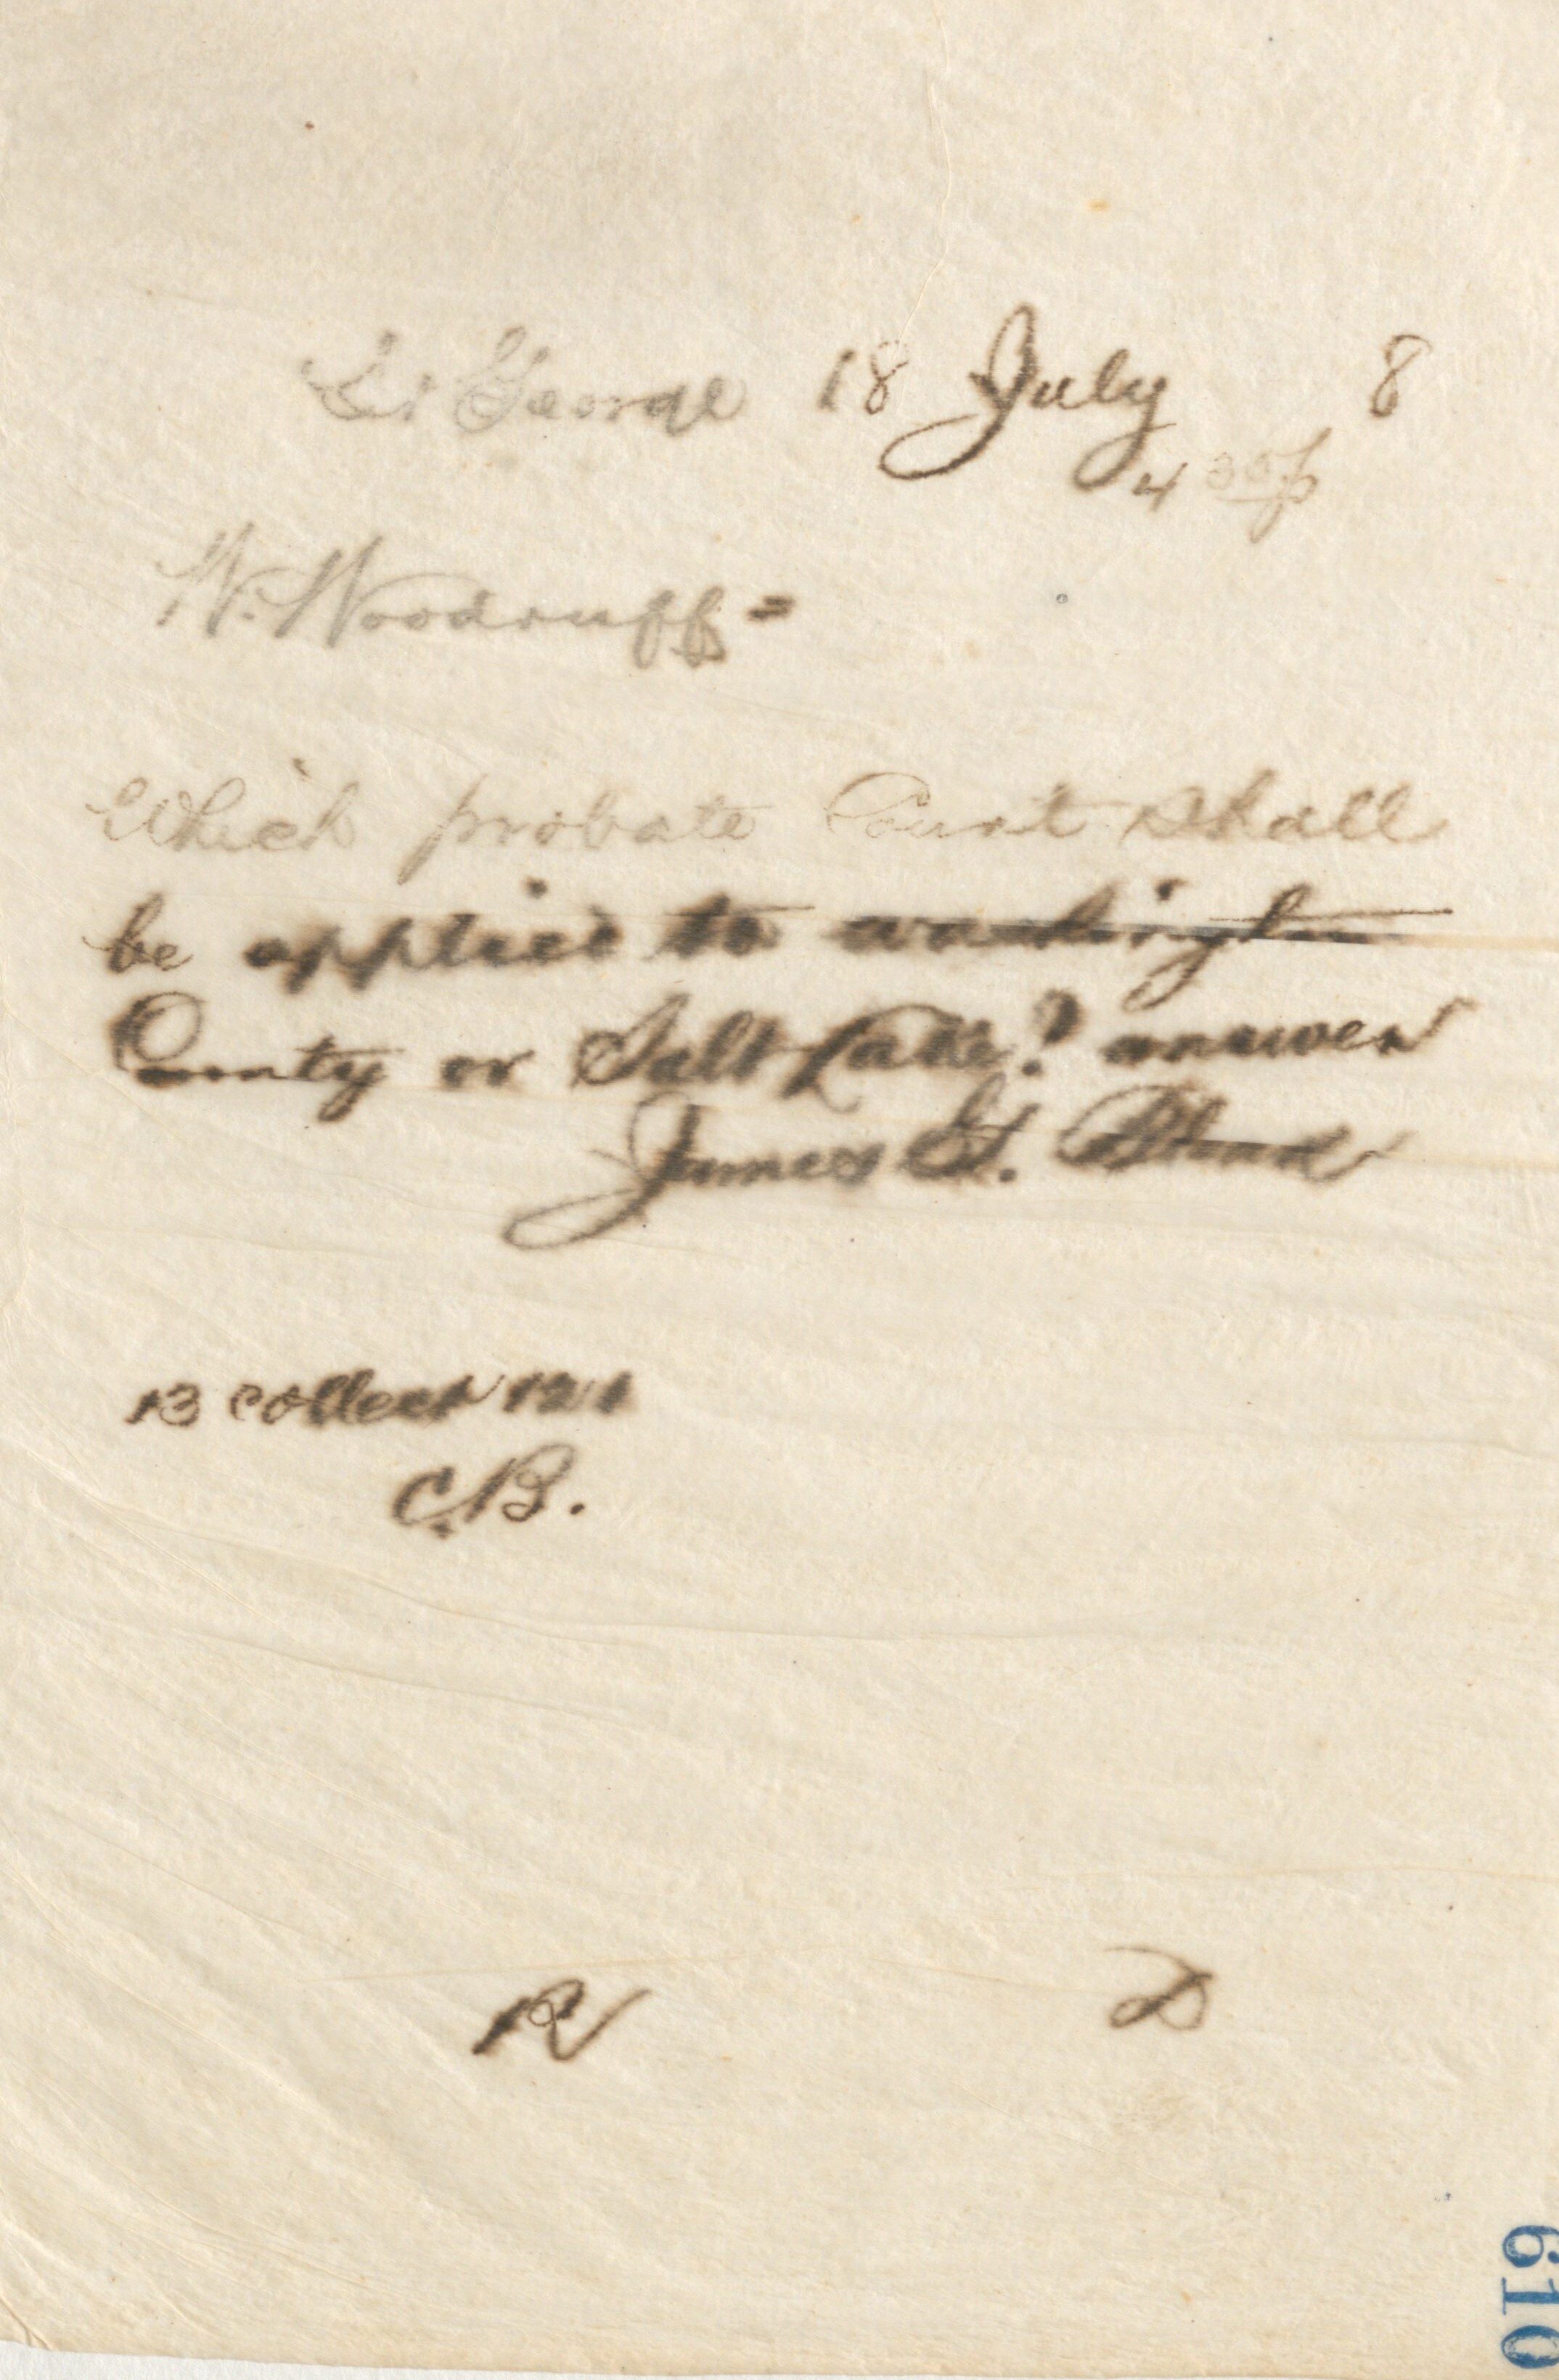 St George 18 July 8
4 30 p
W. Woodruff =
Which probate Court shall
be applied to washington
County or Salt Lake? answer
James G. Bleak
13 collect 121
C.B.
R D
610